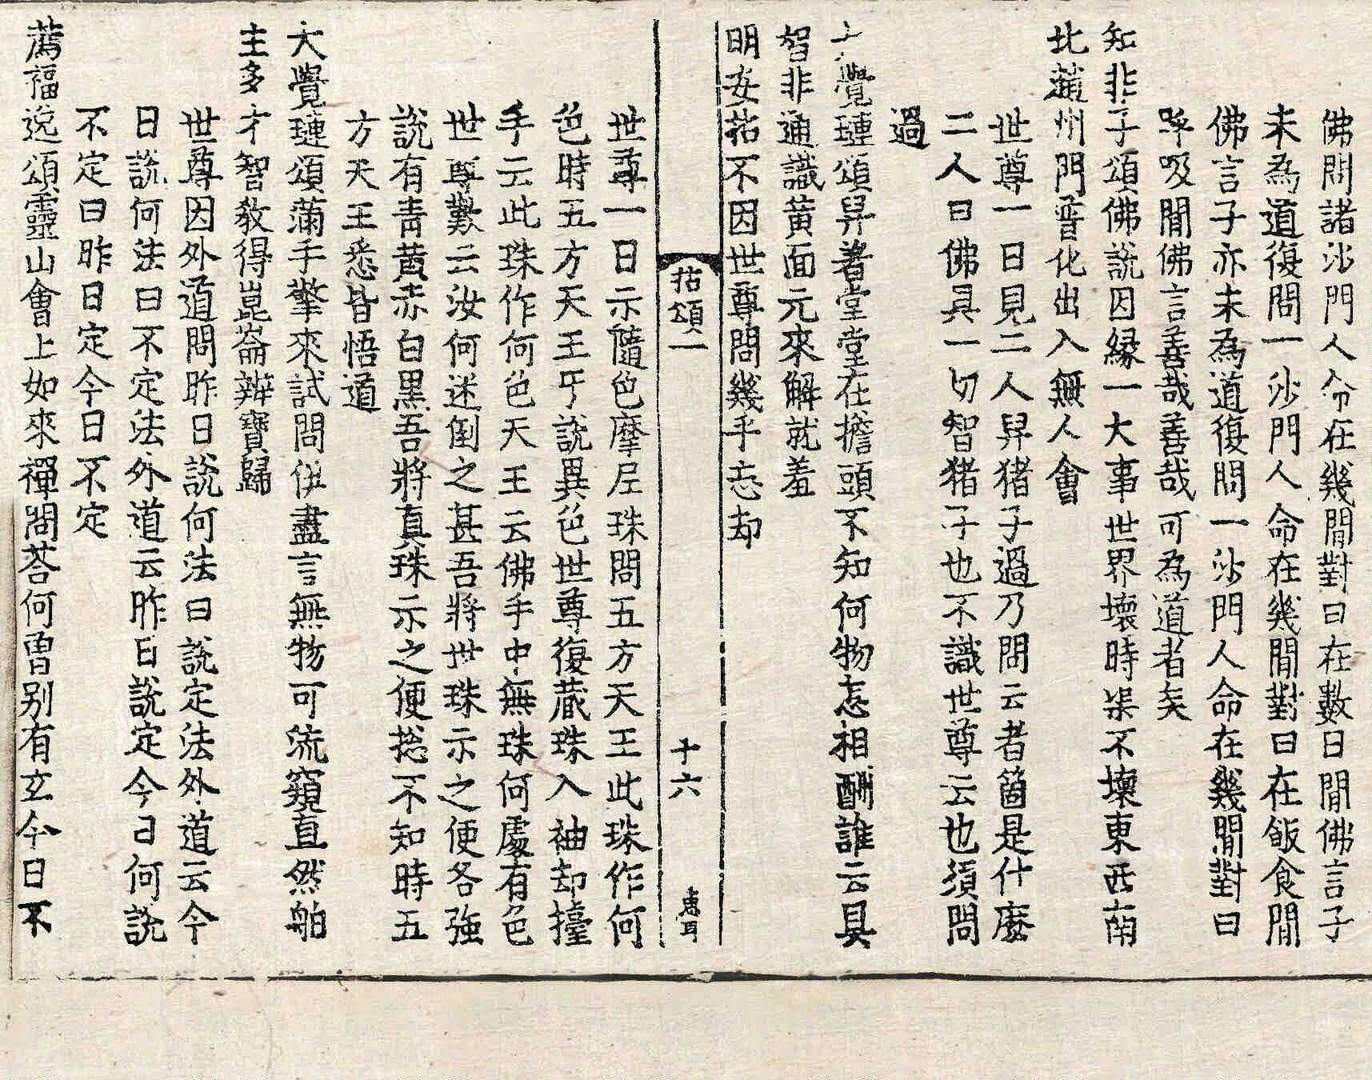 佛問諸沙門人命在幾閒對曰在數日閒佛言子
未為道復問一沙門人命在幾閒對曰在飯食閒
佛言子亦未為道復問一沙門人命在幾閒對曰
呼吸閒佛言善哉善哉可為道者矣
知非子頌佛說因緣一大事世界壞時渠不壞東西南
北趙州門晉化出入無人會
世尊一日見二人舁猪子過乃問云者箇是什麽
二人曰佛具一切智猪子也不識世尊云也須問
過
大覺璉頌舁著堂堂在擔頭不知何物怘相酬誰云具
智非通識黃面元來解就羞
明安拈不因世尊問幾乎忘却
拈頌一
十六
世尊一日示隨色摩尼珠問五方天王此珠作何
色時五方天王互說異色世尊復藏珠入袖却擡
手云此珠作何色天王云佛手中無珠何處有色
世尊歎云汝何迷倒之甚吾將世珠示之便各強
說有靑黃赤白黑吾將真珠示之便捴不知時五
方天王悉皆悟道
大覺璉頌滿手擎來試問伊盡言無物可流窺直然舶
主多才智敎得崑崙辨寶歸
世尊因外道問昨日說何法曰說定法外道云今
日說何法曰不定法外道云昨日說定今日何說
不定曰昨日定今日不定
薦福逸頌靈山會上如來禪問荅何曽別有玄今日不